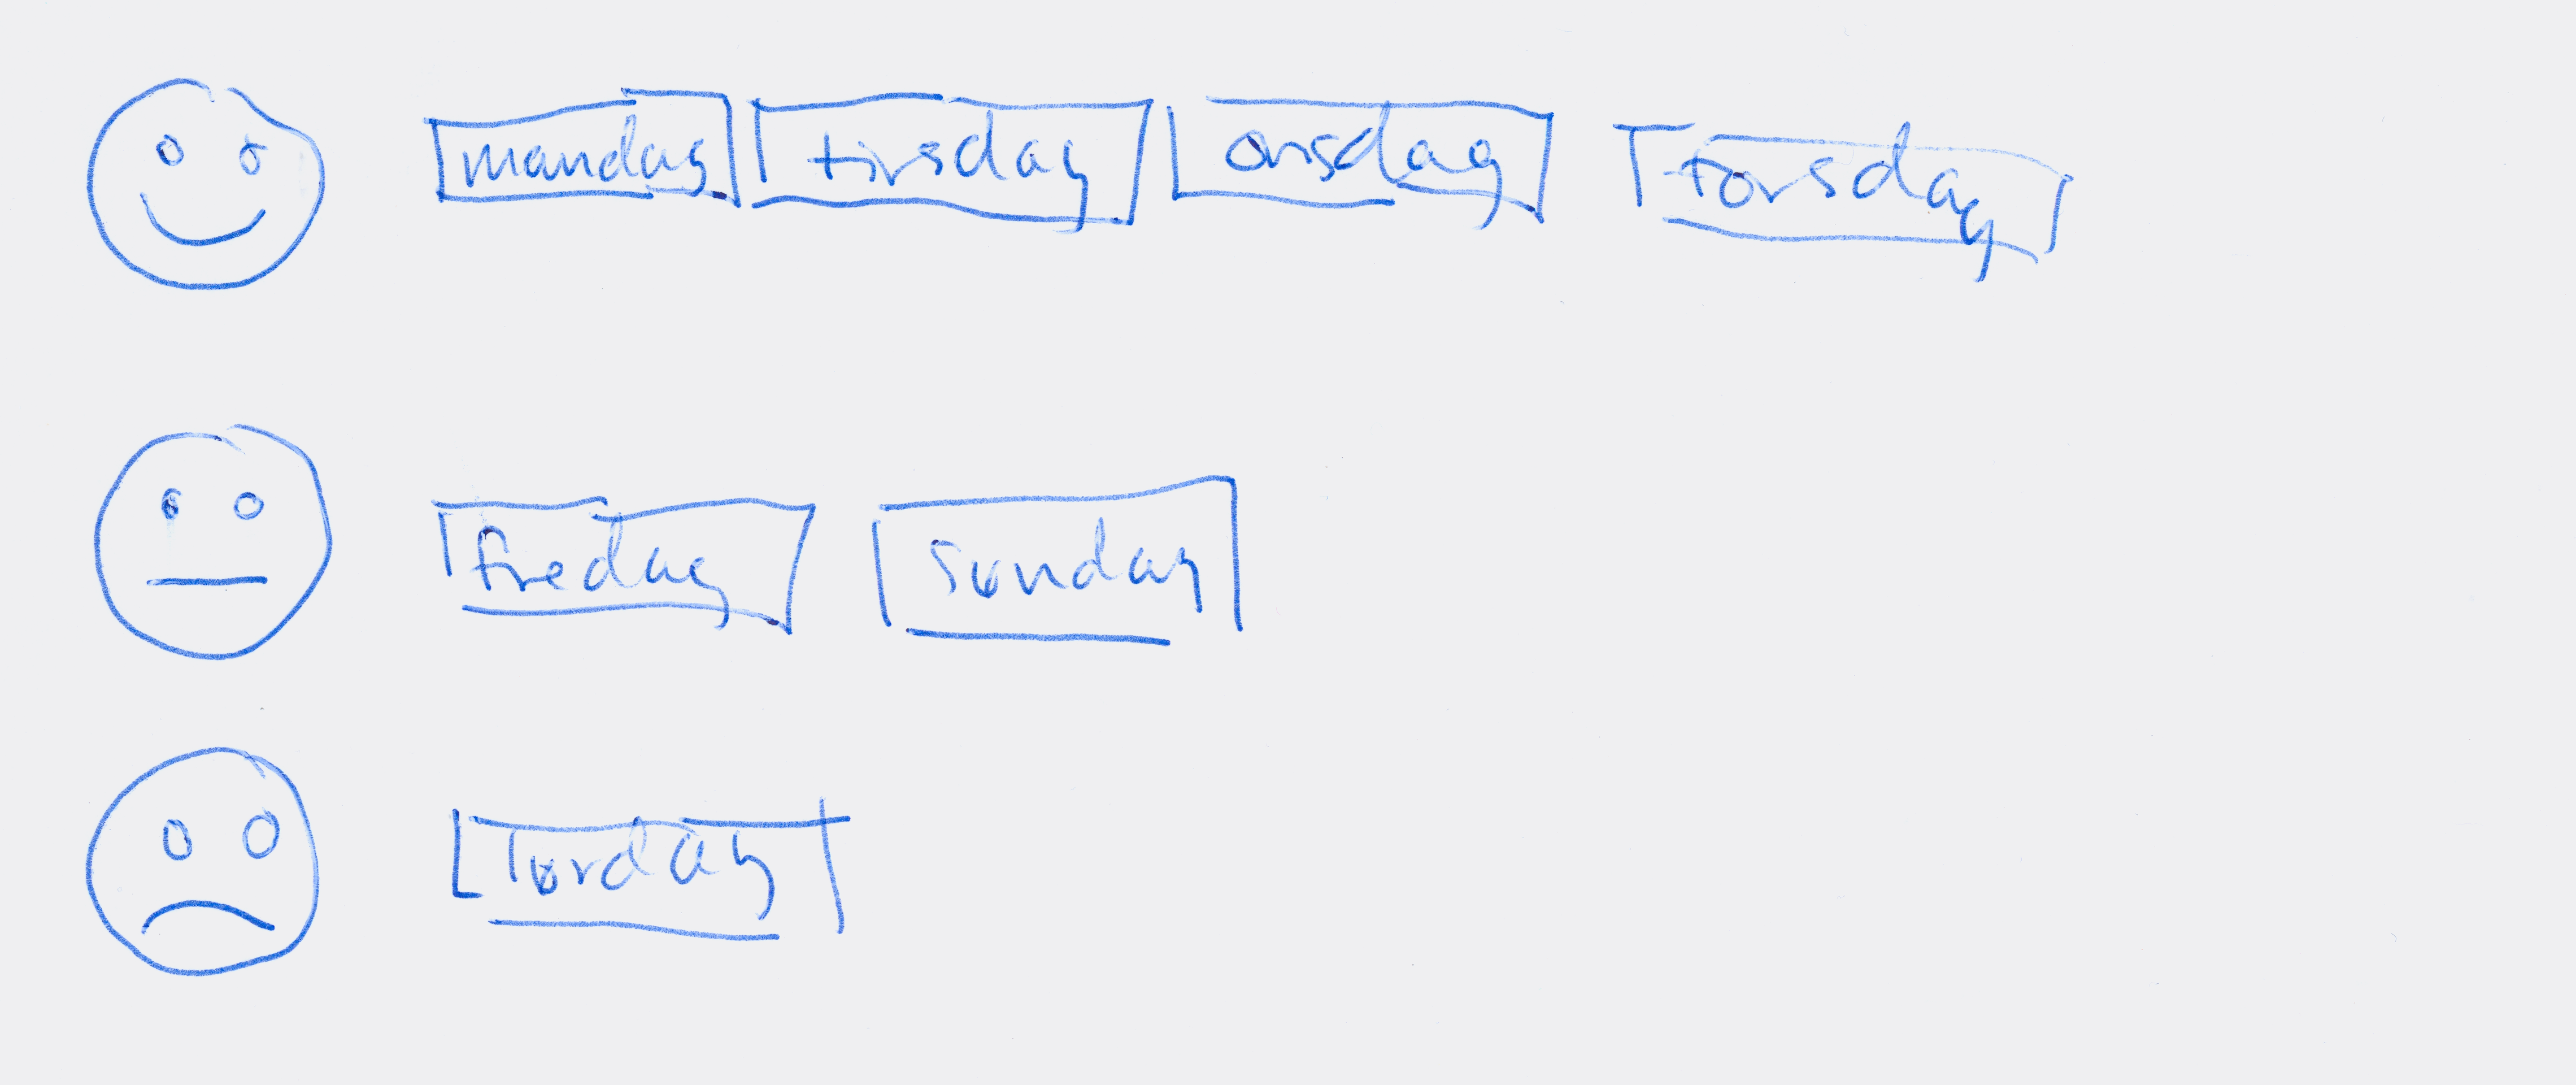 mandag tirsdag onsdag torsdag
fredag søndag
lørdag